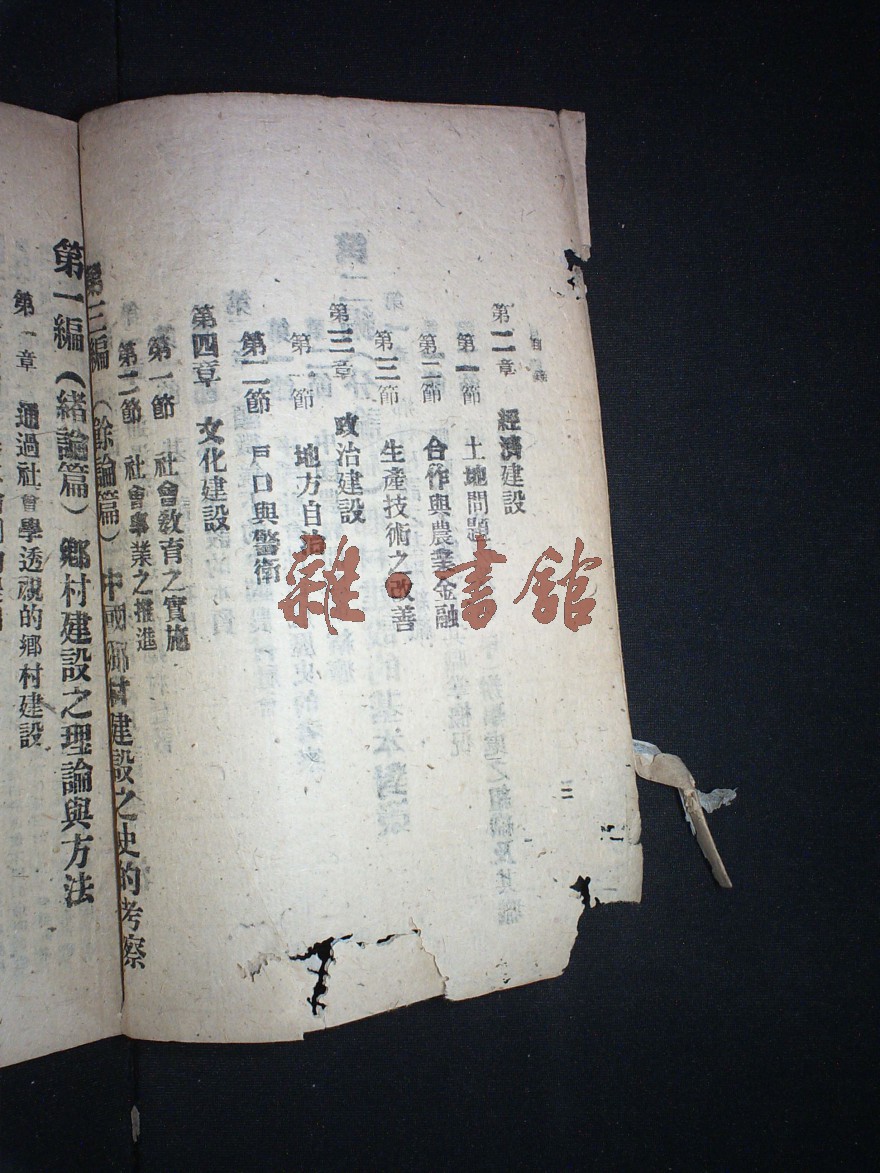 第二章 經濟建設
第一節 土地問題
第二節 合作與農業金融
第三節 生產技術之改善
第三章 政治建設
第一節 地方自治
第二節 戶口與警衛
第四章 文化建設
第一節 社會教育之實施
第二節 社會事業之推進
第三編（餘論篇）中國鄉村建設之史的考察
三
第一編（緒論篇）鄉村建設之理論與方法
第一章 通過社會學透視的鄉村建設
雜·書館